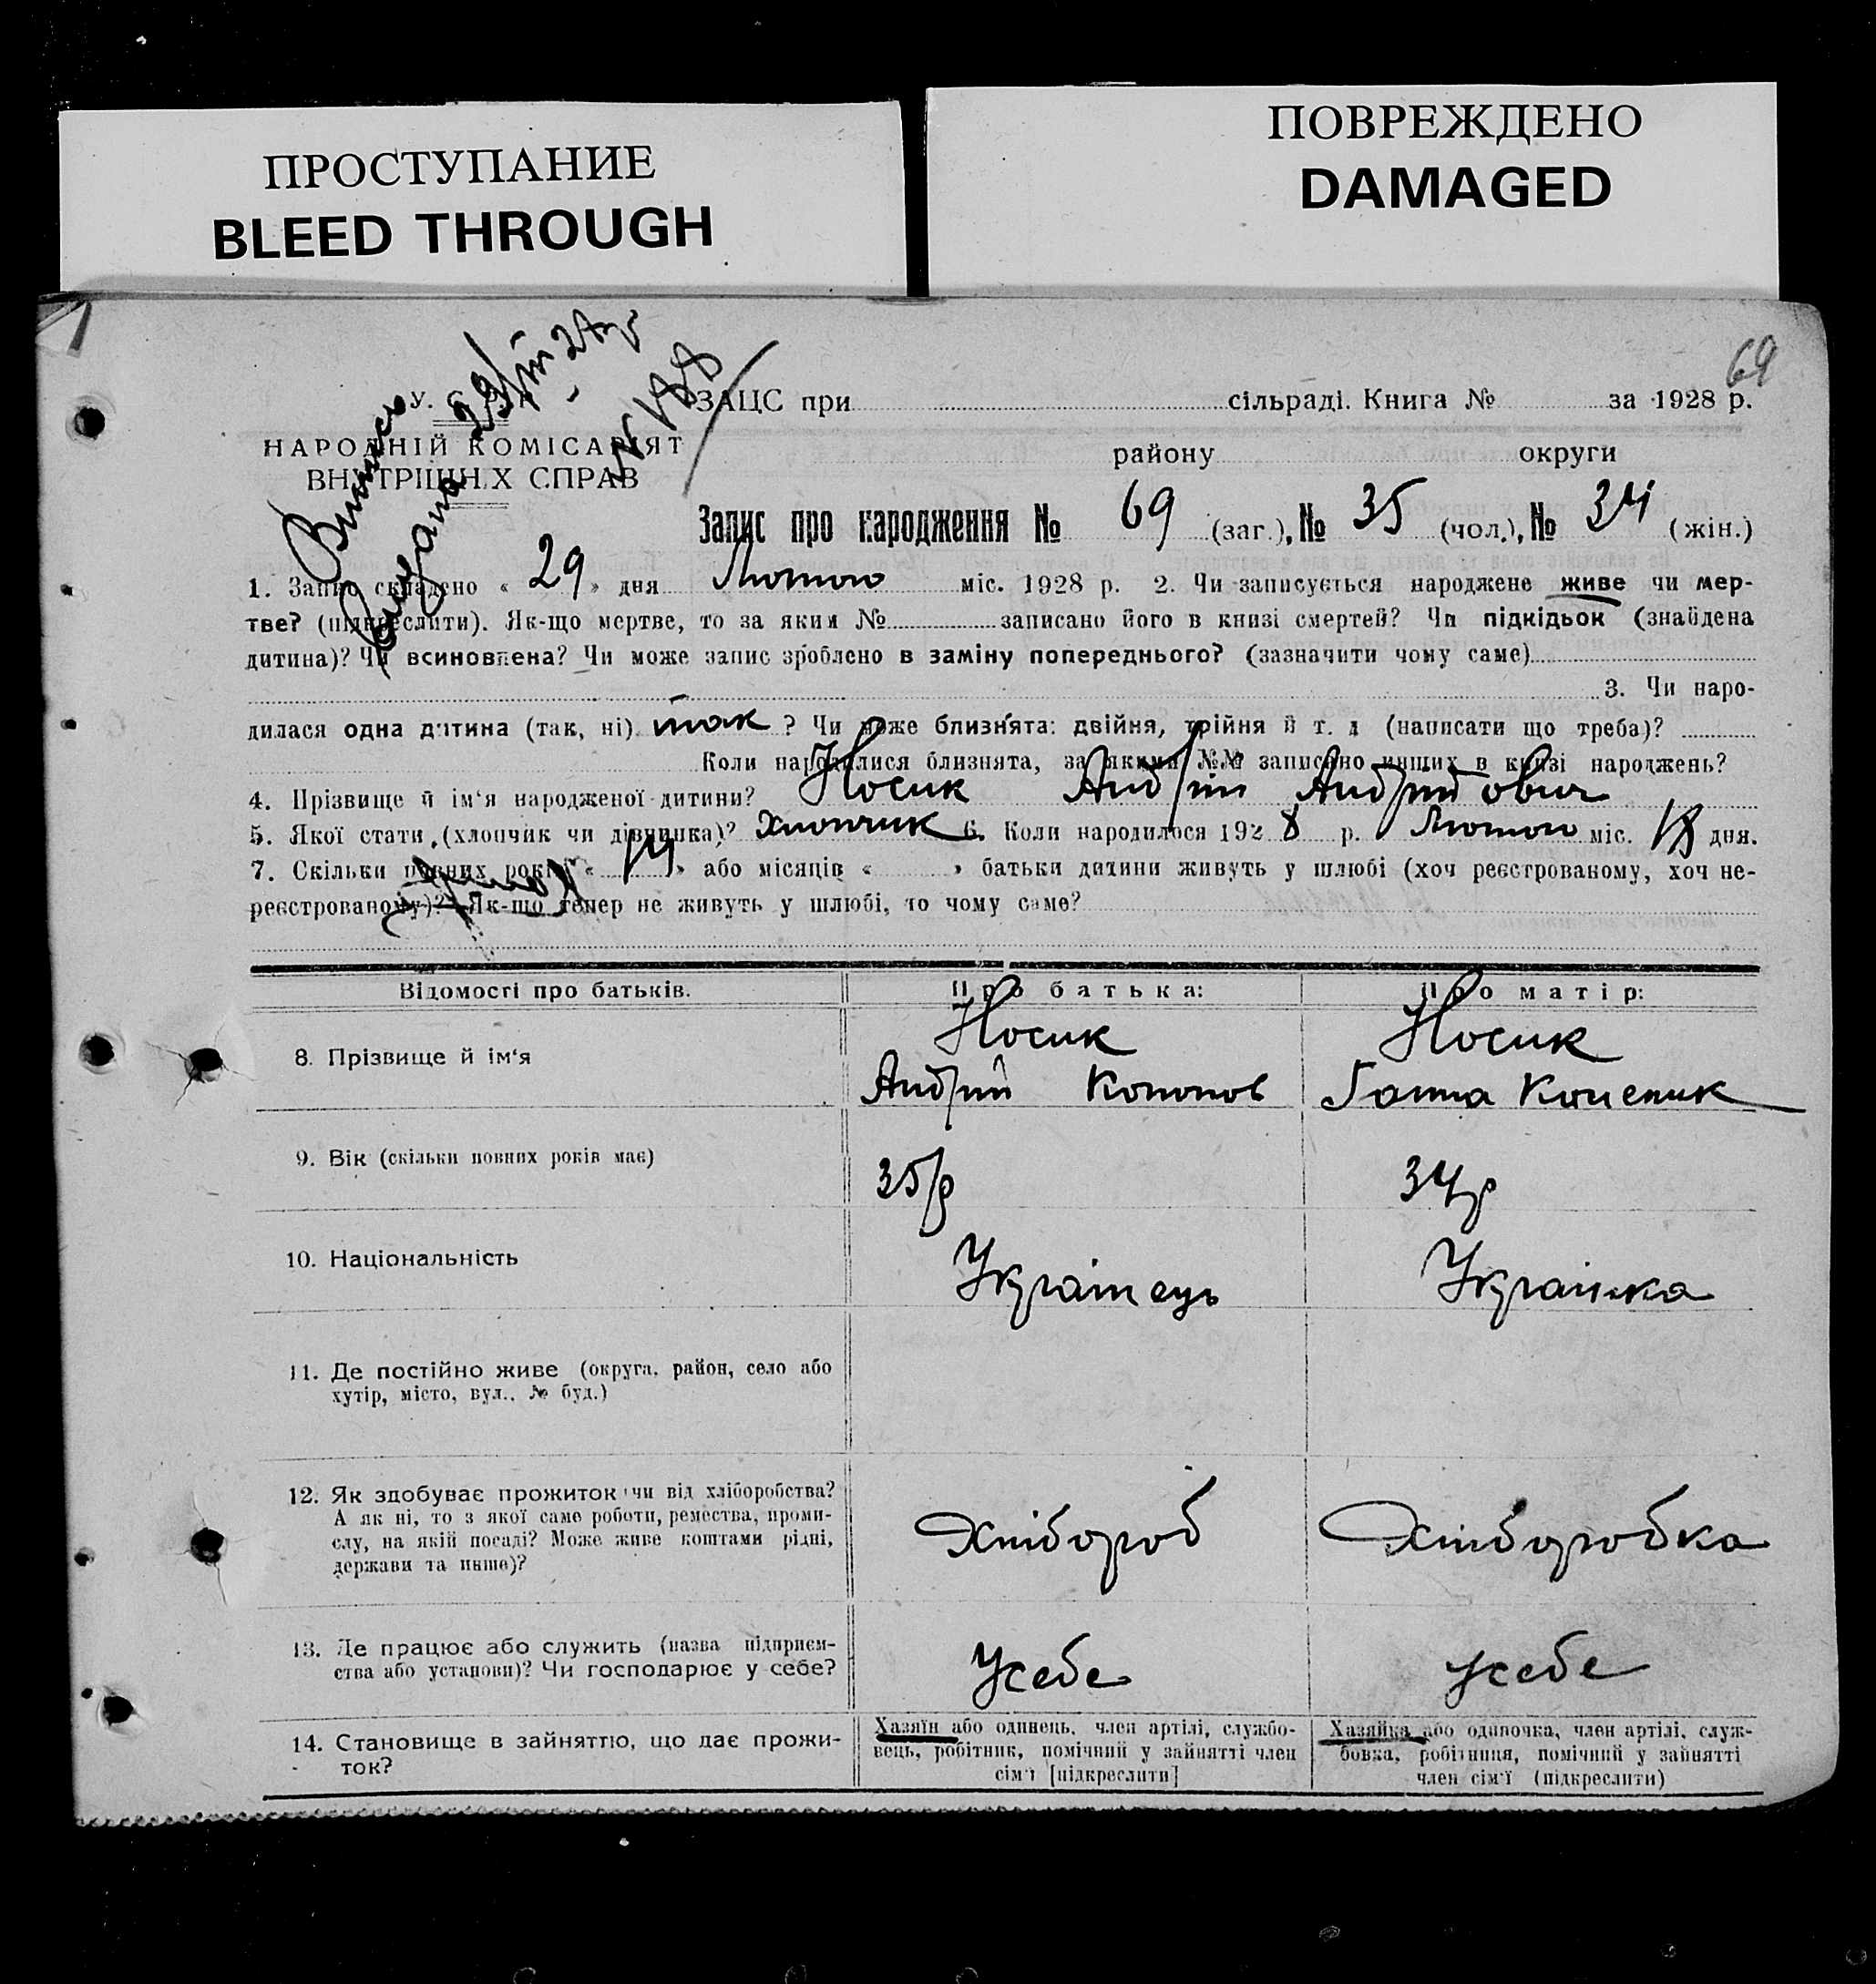 ПРОСТУПАНИЕ
BLEED THROUGH
ПОВРЕЖДЕНО
DAMAGED
69
У. С. Р. Р.
ЗАЦС при сільраді. Книга № за 1928 р.
НАРОДНІЙ КОМІСАРІЯТ
району округи
ВНУТРІШНІХ СПРАВ
Выпись
29/VIII
Запис про народження № 69 (заг.), № 35 (чол.), № 34 (жін.)
1. Запис складено « 29 » дня Лютого міс. 1928 р. 2. Чи записується народжене живе чи мер-
тве? (підкреслити). Як-що мертве, то за яким № записано його в книзі смертей? Чи підкідьок (знайдена
дитина)? Чи всиновлена? Чи може запис зроблено в заміну попереднього? (зазначити чому саме)
3. Чи наро-
дилася одна дитина (так, ні) так ? Чи може близнята: двійня, трійня й т. д (написати що треба)?
Коли народилися близнята, за якими №№ записано инших в книзі народжень?
4. Прізвище й ім‘я народженої дитини? Носик Андрій Андрійович
5. Якої стати (хлопчик чи дівчинка)? Хлопчик 6. Коли народилося 1928 р. Лютого міс. 18 дня.
7. Скільки повних років « 14 » або місяців « » батьки дитини живуть у шлюбі (хоч реєстрованому, хоч не-
реєстрованому)? Як-що тепер не живуть у шлюбі, то чому саме?
Відомості про батьків. Про батька: Про матір:
8. Прізвище й ім‘я Носик Носик
Андрій Кононов Ганна
9. Вік (скільки повних років має) 35 р 34 р
10. Національність Українець Українка
11. Де постійно живе (округа, район, село або
хутір, місто, вул., № буд.)
12. Як здобуває прожиток чи від хліборобства?
А як ні, то з якої саме роботи, ремества, проми-
слу, на якій посаді? Може живе коштами рідні,
держави та инше)?
Хлібороб Хліборобка
13. Де працює або служить (назва підприєм-
ства або установи)? Чи господарює у себе?
Усебе усебе
14. Становище в зайняттю, що дає прожи-
ток?
Хазяїн або одинець, член артілі, службо-
вець, робітник, помічний у зайнятті член
сім‘ї [підкреслити]
Хазяйка або одиночка, член артілі, служ-
бовка, робітниця, помічний у зайнятті
член сім‘ї (підкреслити)